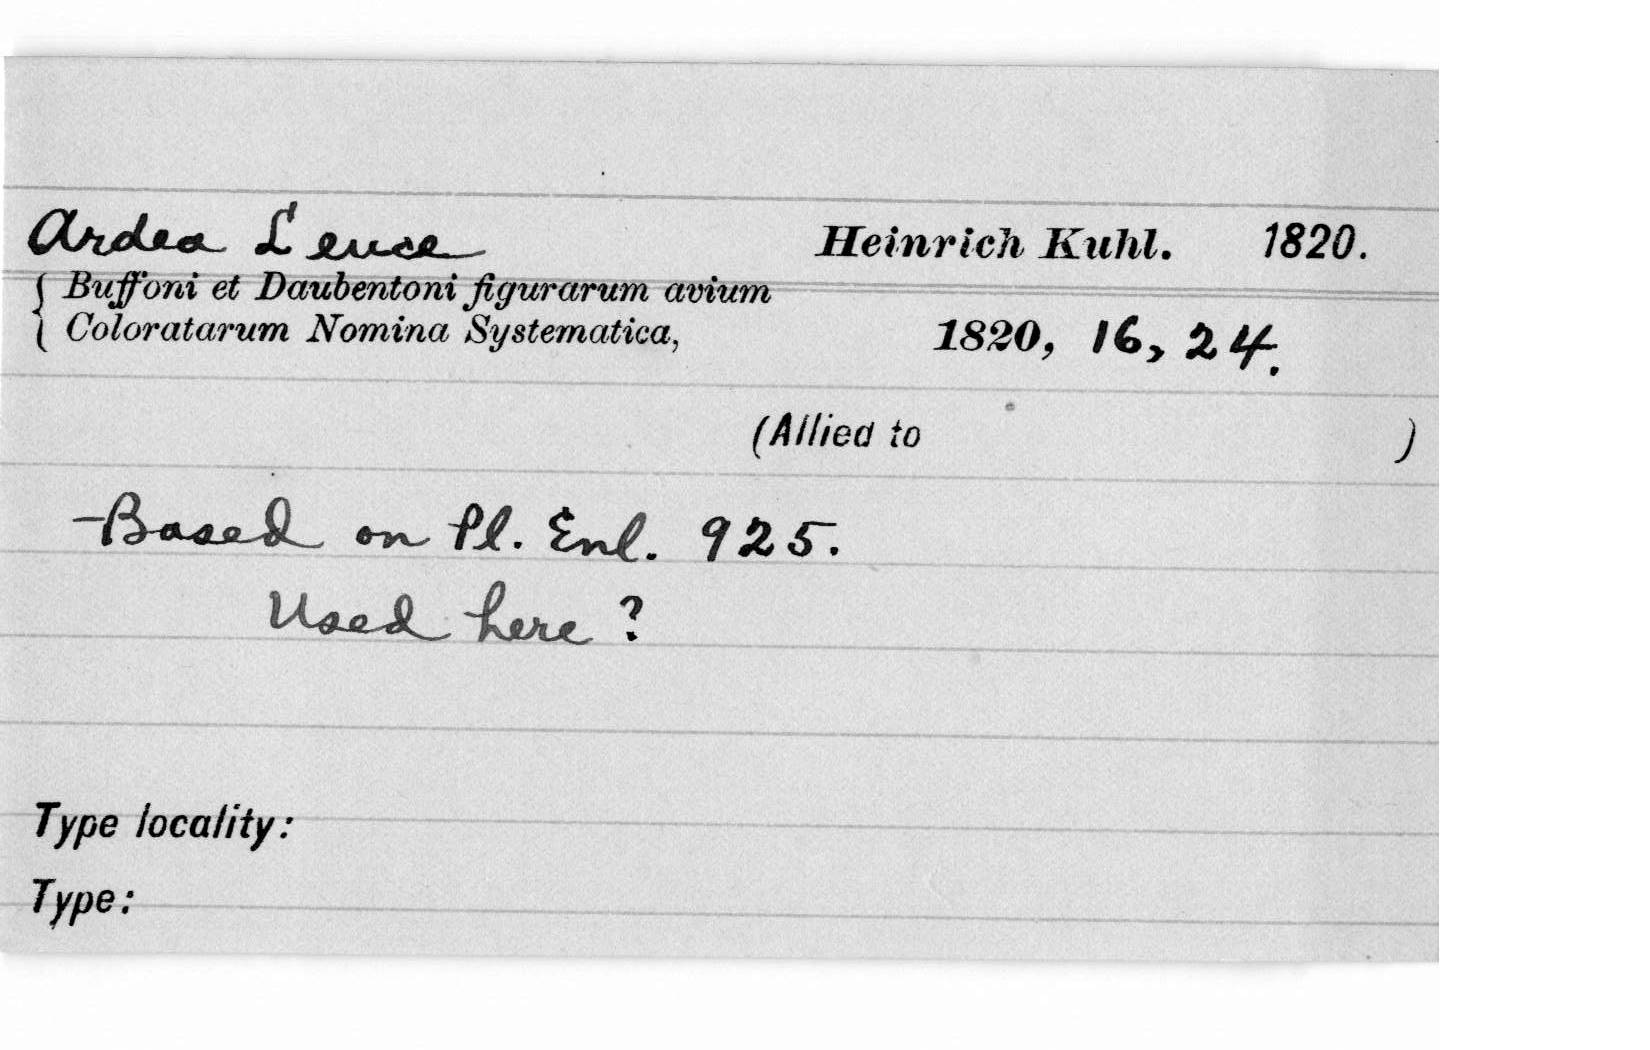 Ardea Leuce Heinrich Kuhl. 1820.
Buffoni et Daubentoni figurarum avium
Coloratarum Nomina Systematica, 1820, 16, 24.
(Allied to )
Based on Pl. Enl. 925.
Used here?
Type locality:
Type: